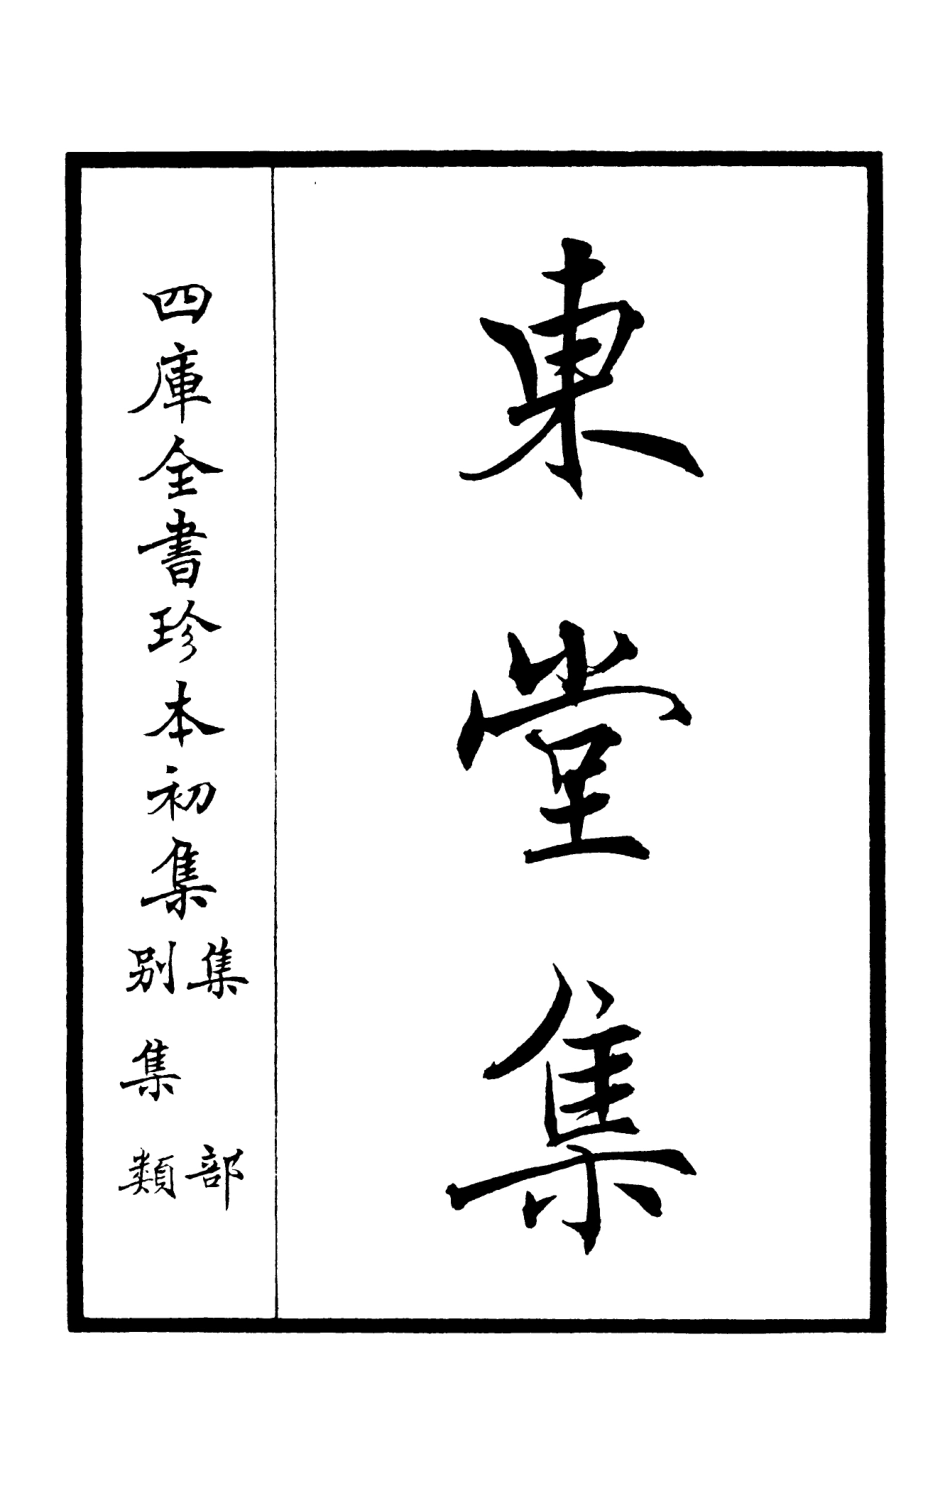 東堂集
四庫全書珍本初集
集部
别集類